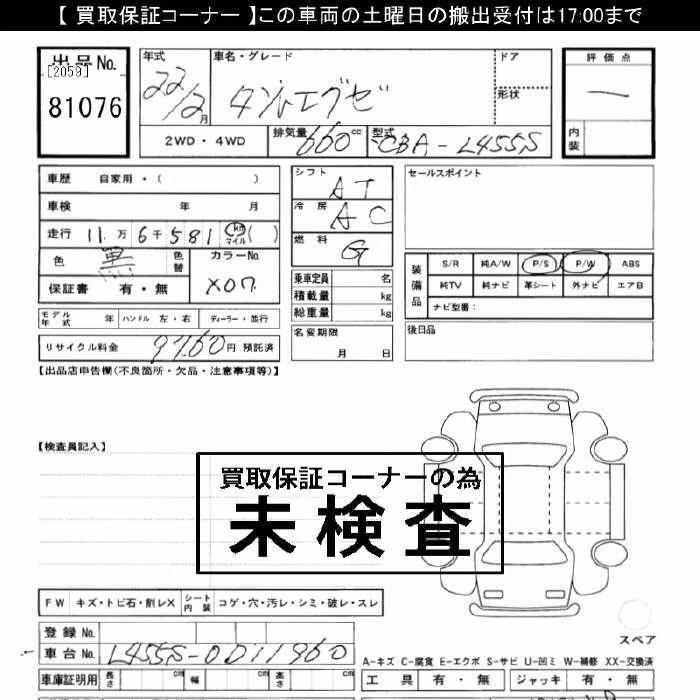 【 買取保証コーナー 】この車両の土曜日の搬出受付は17:00まで
出品No.
[2059]
81076
年式 22/12月
車名・グレード タントエグゼ
ドア
形状
評価点
—
内装
2WD・4WD
排気量 660cc
型式 CBA-L455S
車歴 自家用・( )
車検 年 月
走行 11万6千581 km マイル ( )
色 黒 色替
カラーNo. X07
保証書 有・無
モデル年式 年 ハンドル 左・右 ディーラー・並行
リサイクル料金 9760円 預託済
シフト AT
冷房 AC
燃料 G
乗車定員 名
積載量 kg
総重量 kg
名変期限
月 日
セールスポイント
装備品
S/R 純A/W P/S P/W ABS
純TV 純ナビ 革シート 外ナビ エアB
ナビ型番:
後日品
【出品店申告欄(不良箇所・欠品・注意事項等)】
【検査員記入】
買取保証コーナーの為
未検査
FW キズ・トビ石・割レX シート内装 コゲ・穴・汚レ・シミ・破レ・スレ
登録No.
車台No. L455S-0011960
車庫証明用 長さ cm 幅 cm 高さ cm
スペア
A-キズ C-腐食 E-エクボ S-サビ U-凹ミ W-補修 XX-交換済
工具 有・無 ジャッキ 有・無